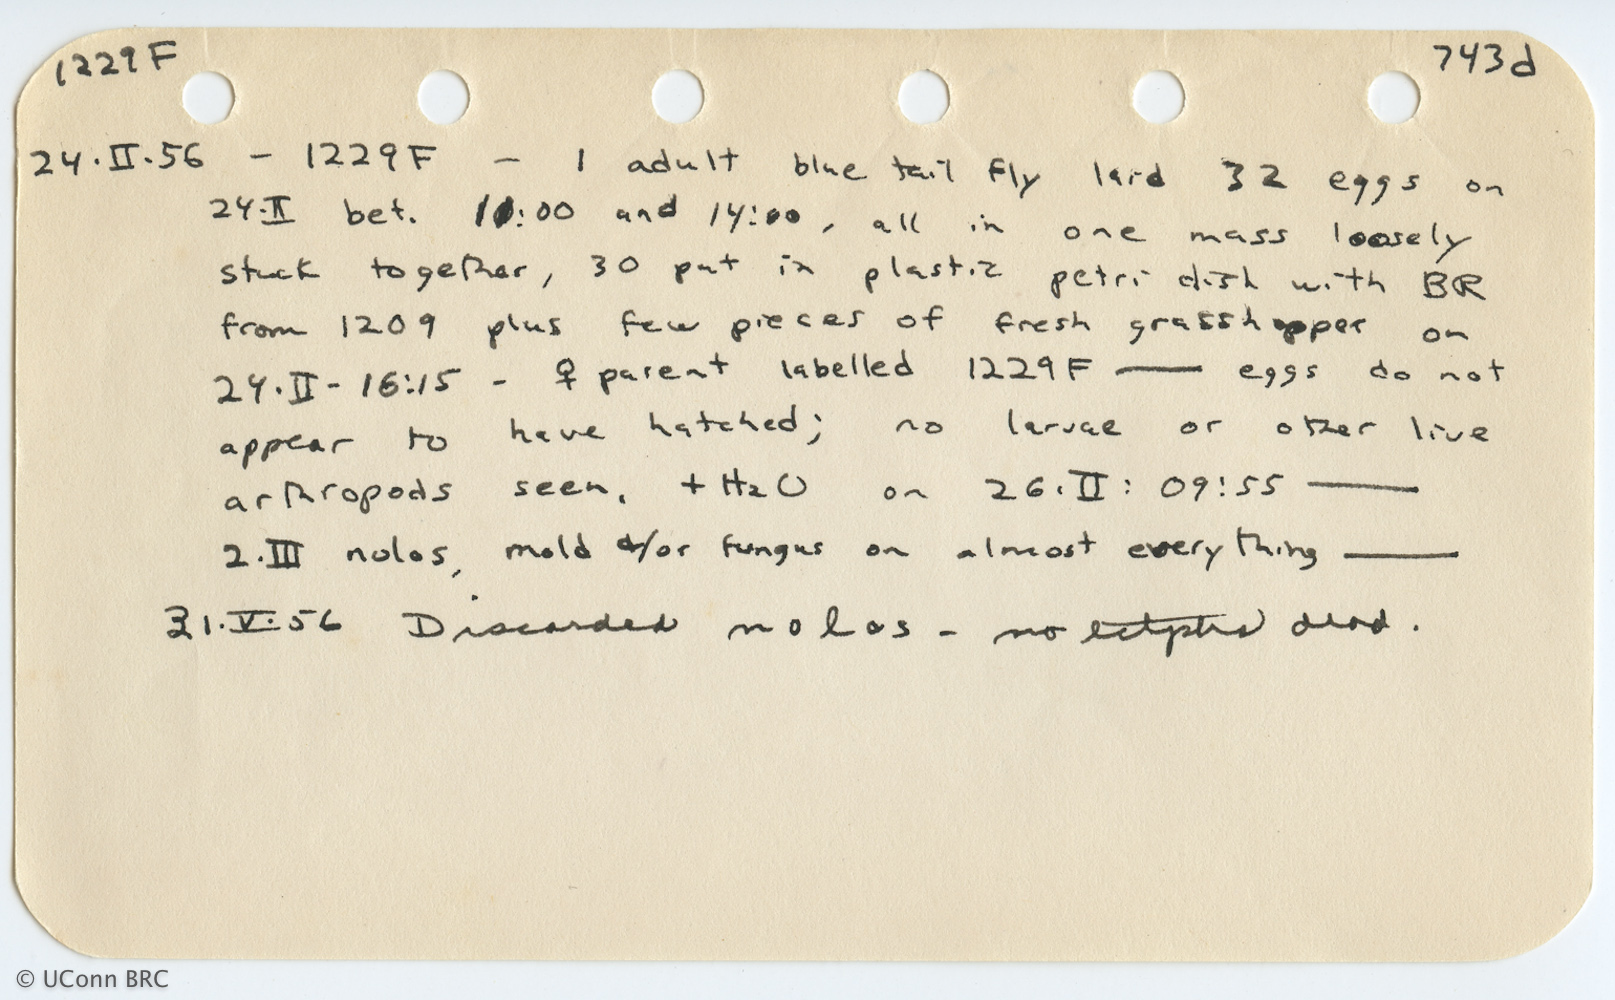 1229F 743d
24.II.56 - 1229F - 1 adult blue tail fly laid 32 eggs on
24.II bet. 11:00 and 14:00, all in one mass loosely
stuck together, 30 put in plastic petri dish with BR
from 1209 plus few pieces of fresh grasshopper on
24.II - 16:15 - ♀ parent labelled 1229F — eggs do not
appear to have hatched; no larvae or other live
arthropods seen, + H2O on 26.II: 09:55 —
2.III nolos, mold &/or fungus on almost everything —
31.V.56 Discarded nolos - no dead.
© UConn BRC